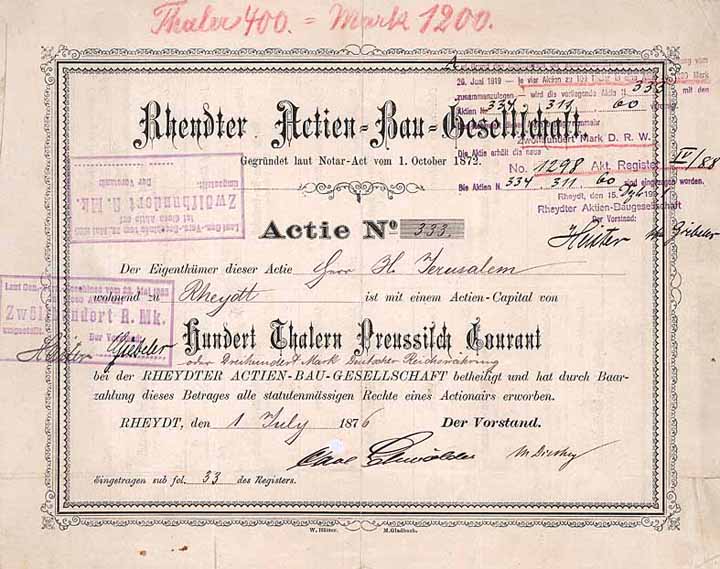 Thaler 400. = Mark 1200.
26. Juni 1919 — je vier Aktien zu
zusammenzulegen — wird die vorliegende Aktie 333 mit den
Aktien No 334, 311, 60
Zwölfhundert Mark D. R. W.
Die Aktie erhält die neue
No. 1298 Akt. Register IV/88
Die Aktien N. 334. 311. 60 sind eingezogen worden.
Rheydt, den 15.
Rheydter Aktien-Baugesellschaft
Der Vorstand:
Heister M Giebeler
Rheydter Actien-Bau-Gesellschaft.
Gegründet laut Notar-Act vom 1. October 1872.
Zwölfhundert R. Mk.
Der Vorstand
Actie No 333
Der Eigenthümer dieser Actie Herr H Jerusalem
wohnend zu Rheydt ist mit einem Actien-Capital von
Zwölfhundert R. Mk.
Der Vorstand
Heister Giebeler
Hundert Thalern Preussisch Courant
oder Dreihundert Mark Deutscher Reichswährung
bei der RHEYDTER ACTIEN-BAU-GESELLSCHAFT betheiligt und hat durch Baar-
zahlung dieses Betrages alle statutenmässigen Rechte eines Actionairs erworben.
RHEYDT, den 1 July 1876 Der Vorstand.
Eingetragen sub fol. 33 des Registers.
W. Hütter. M.Gladbach.